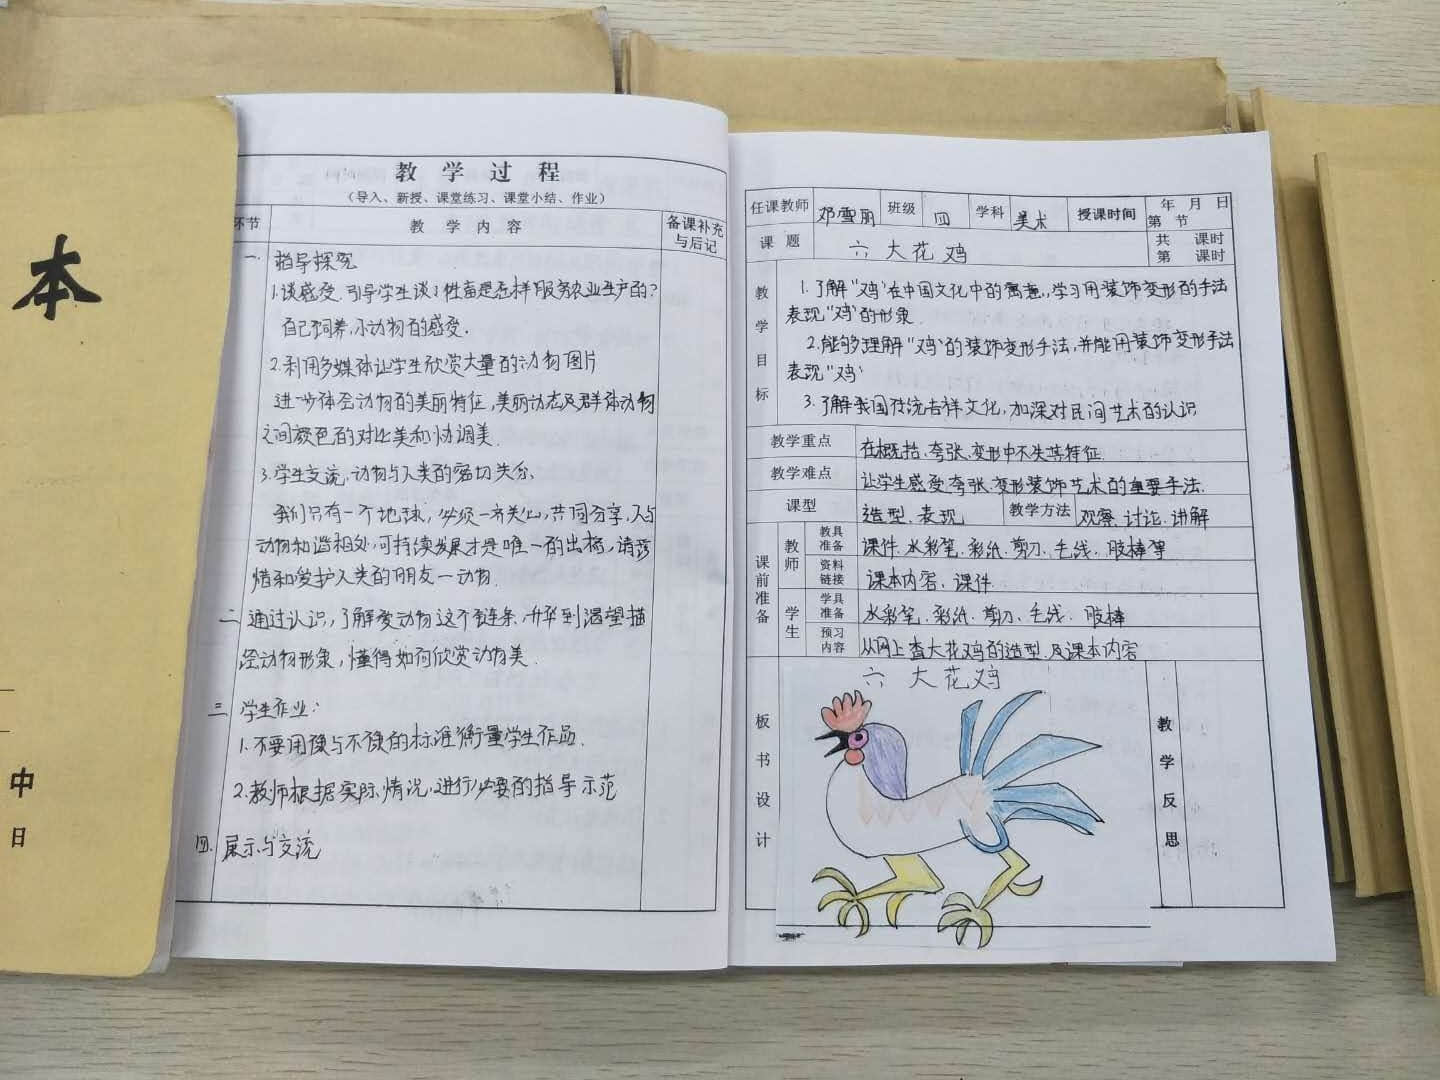 本
中
日
教学过程
（导入、新授、课堂练习、课堂小结、作业）
环节 教学内容 备课补充与后记
一. 指导探究
1.谈感受.引导学生谈谈牲畜是怎样服务农业生产的?
自己饲养小动物的感受.
2.利用多媒体让学生欣赏大量的动物图片
进一步体会动物的美丽特征,美丽动态及群体动物
之间颜色的对比美和协调美.
3.学生交流,动物与人类的密切关系.
我们只有一个地球,必须一齐关心,共同分享,人与
动物和谐相处,可持续发展才是唯一的出格,请珍
惜和爱护人类的朋友一动物.
二 通过认识,了解爱动物这个链条,升华到渴望描
绘动物形象,懂得如何欣赏动物美.
三 学生作业:
1.不要用像与不像的标准衡量学生作品.
2.教师根据实际情况,进行必要的指导示范
四. 展示与交流
任课教师 邓雪丽 班级 四 学科 美术 授课时间 年 月 日 第 节
课题 六 大花鸡 共 课时 第 课时
教学目标
1.了解"鸡"在中国文化中的寓意,学习用装饰变形的手法
表现"鸡"的形象.
2.能够理解"鸡"的装饰变形手法,并能用装饰变形手法
表现"鸡"
3.了解我国传统吉祥文化,加深对民间艺术的认识
教学重点 在概括、夸张、变形中不失其特征.
教学难点 让学生感受夸张、变形装饰艺术的重要手法.
课型 造型、表现 教学方法 观察、讨论、讲解
课前准备
教师 教具准备 课件、水彩笔、彩纸、剪刀、毛线、胶棒等
资料链接 课本内容、课件
学生 学具准备 水彩笔、彩纸、剪刀、毛线、胶棒
预习内容 从网上查大花鸡的造型及课本内容
板书设计
六 大花鸡
教学反思